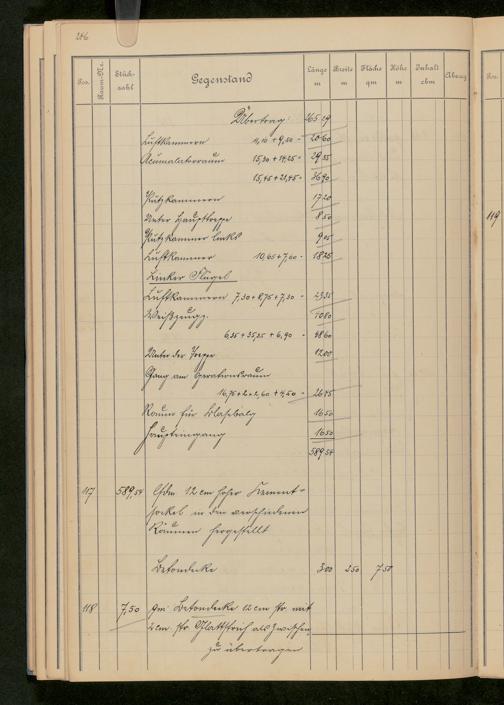 206
Pos. Raum-Nr. Stückzahl Gegenstand Länge m Breite m Fläche qm Höhe m Inhalt cbm Abzug Pos.
Übertrag: 265 19
Luftkammern 11,10 + 9,50 = 20 60
Acumulatorraum 15,30 + 14,25 = 29 55
15,45 + 21,45 = 36 90
Putzkammern 17 20
Unter Haupttreppe 8 50
Putzkammer links 9 05
Luftkammer 10,65 + 7,60 = 18 25
Linker Flügel
Luftkammern 7,30 + 8,75 + 7,30 = 23 35
Weißzeugg. 70 80
6,35 + 35,35 + 6,90 = 48 60
Unter der Treppe 12 00
Gang am Operationsraum
16,75 + 2 × 2,60 + 4,50 = 26 45
Raum für Blasebalg 16 50
Haupteingang 16 50
589 54
119
117 589,54 lfdm 12 cm hoher Zement-
sockel in den verschiedenen
Räumen hergestellt
Betondecke 3 00 2 50 7 50
118 7,50 qm Betondecke 12 cm str. mit
2 cm str. Glattstrich als Zwischen
zu übertragen